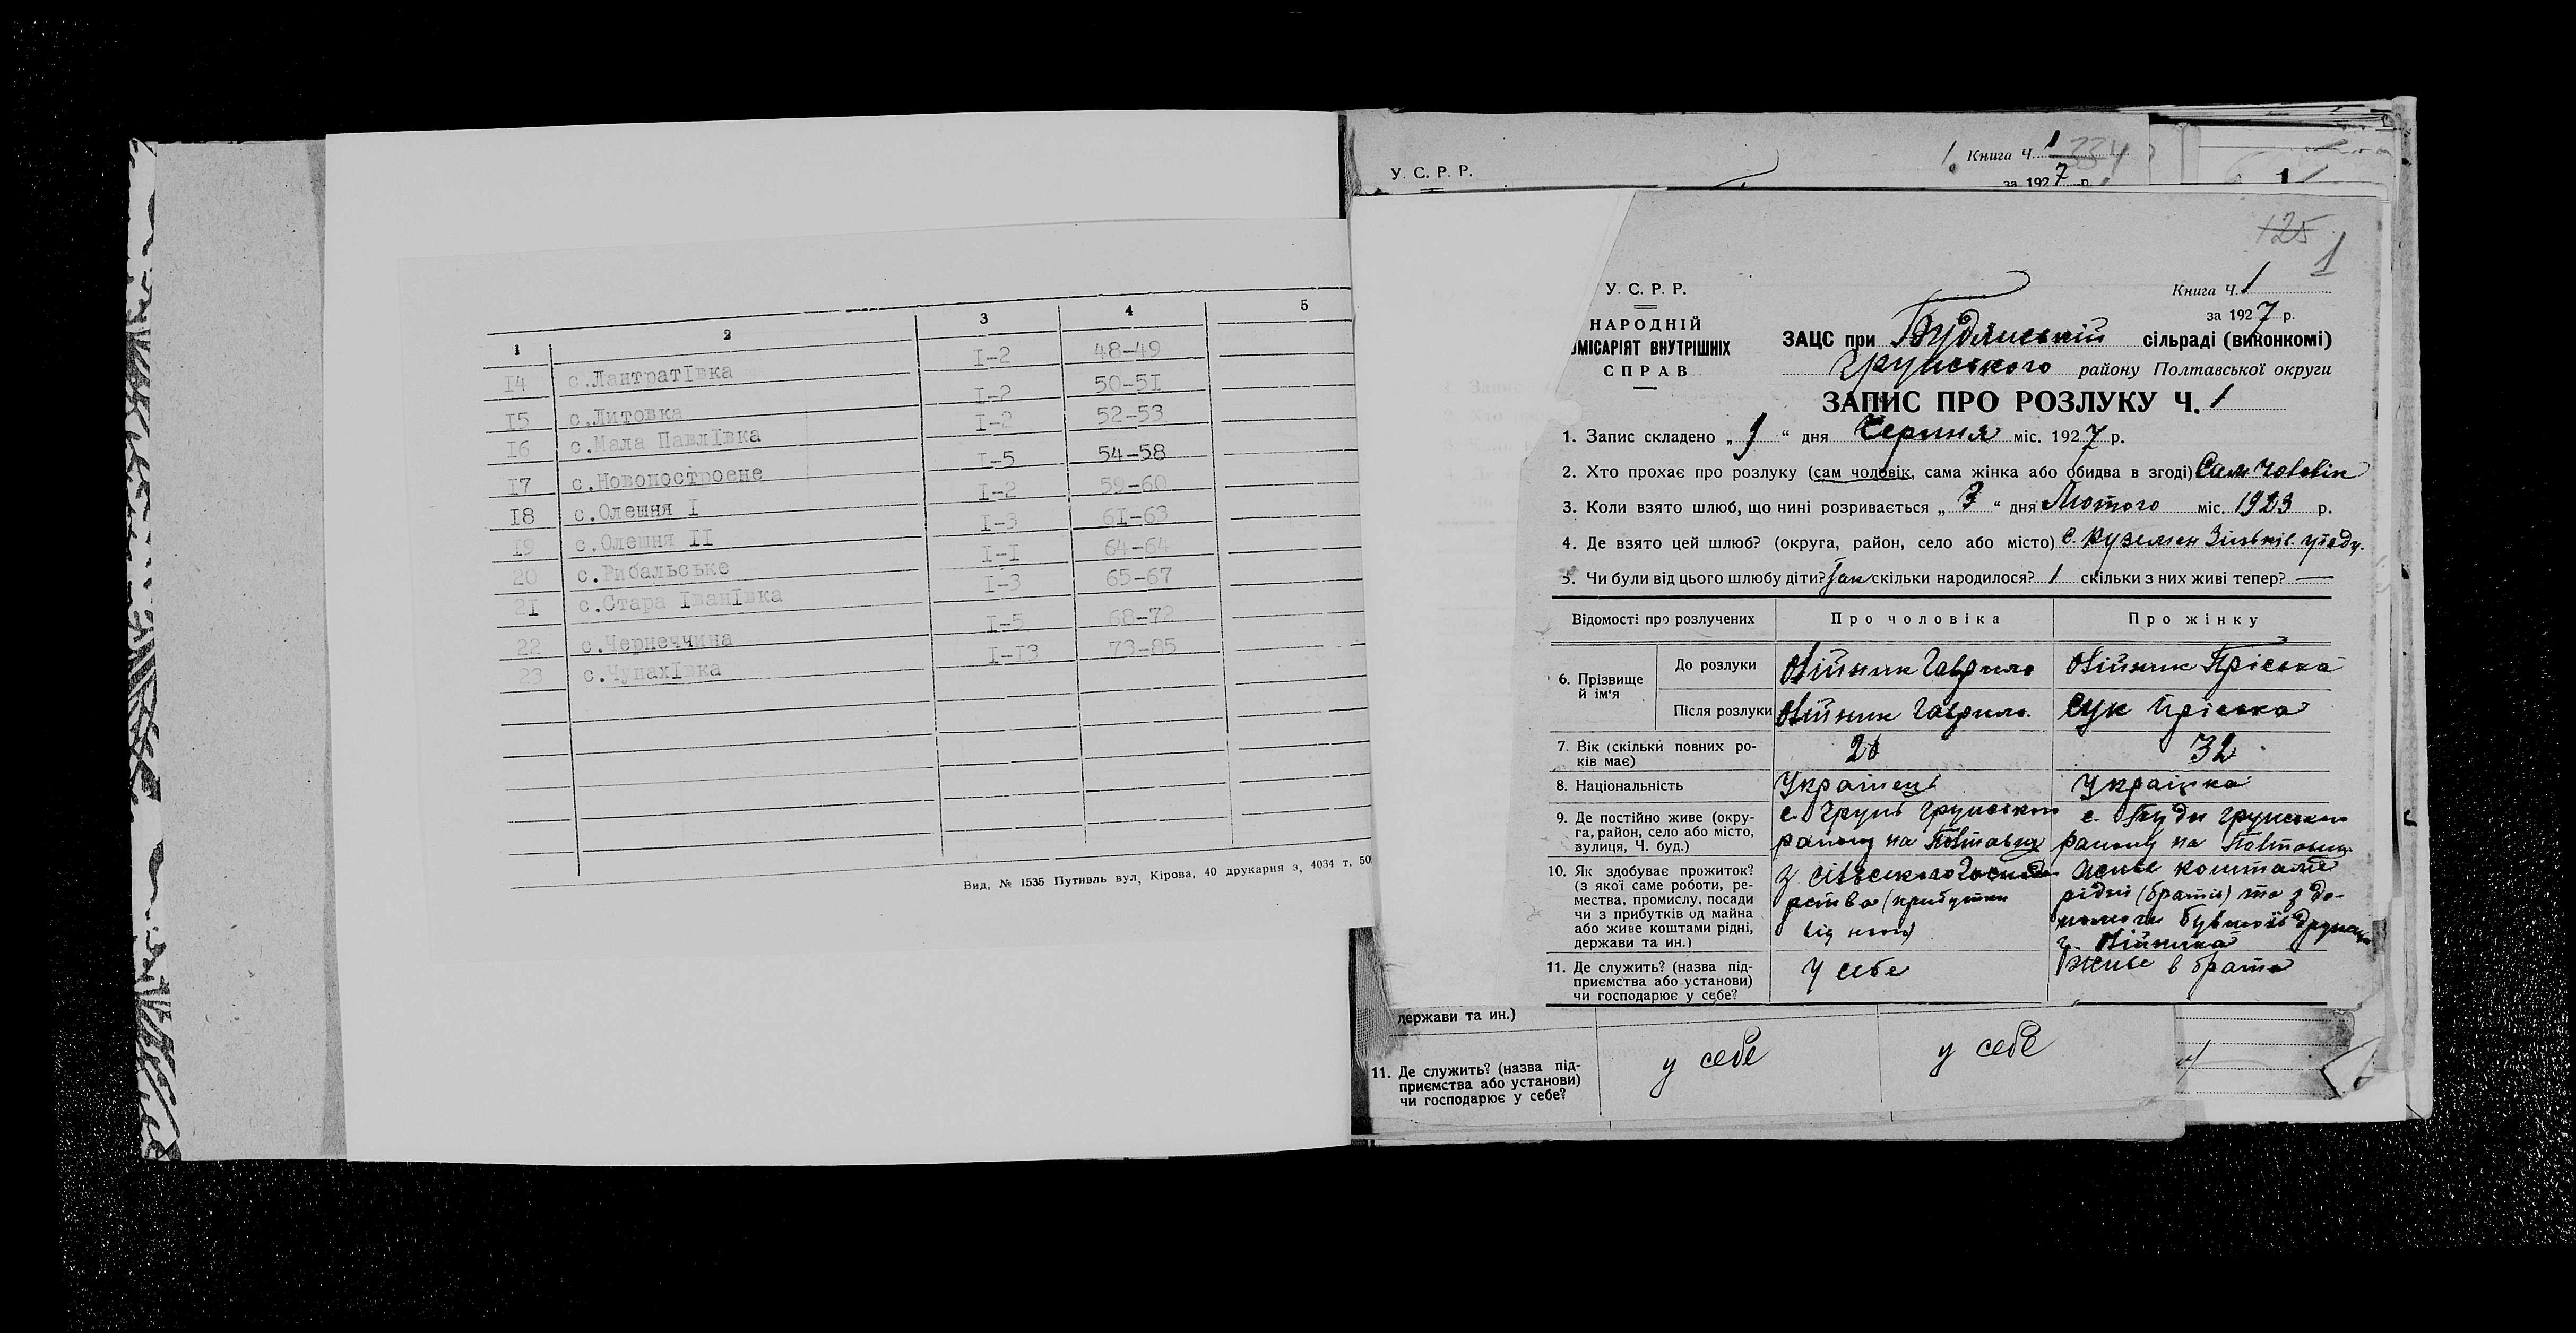 1 2 3 4 5
14 с.ЛантратІвка I-2 48-49
15 с.Литовка I-2 50-51
16 с.Мала ПавлІвка I-2 52-53
17 с.Новопостроене I-5 54-58
18 с.Олешня I I-2 59-60
19 с.Олешня II I-3 61-63
20 с.Рибальське I-I 64-64
21 с.Стара ІванІвка I-3 65-67
22 с.Чернеччина I-5 68-72
23 с.ЧупахІвка I-13 73-85
Вид. № 1535 Путивль вул, Кірова, 40 друкарня з, 4034 т. 50
У. С. Р. Р.
1. Книга Ч. 1 334
за 1927 р.
1
125
1
У. С. Р. Р.
НАРОДНІЙ
ОМІСАРІЯТ ВНУТРІШНІХ
СПРАВ
Книга Ч. 1
за 1927 р.
ЗАЦС при Будянській сільраді (виконкомі)
Грунського району Полтавської округи
ЗАПИС ПРО РОЗЛУКУ Ч. 1
1. Запис складено „ 9 “ дня Серпня міс. 1927 р.
2. Хто прохає про розлуку (сам чоловік, сама жінка або обидва в згоді) Сам чоловік
3. Коли взято шлюб, що нині розривається „ 7 “ дня Лютого міс. 1923 р.
4. Де взято цей шлюб? (округа, район, село або місто) с. Куземен Зіньків. уїзду.
5. Чи були від цього шлюбу діти? Так скільки народилося? 1 скільки з них живі тепер? —
Відомості про розлучених Про чоловіка Про жінку
6. Прізвище й ім'я
До розлуки Олійник Гаврило Олійник Пріська
Після розлуки Олійник Гаврило. Сук Пріська
7. Вік (скільки повних ро-
ків має) 32
8. Національність Українець Українка
9. Де постійно живе (окру-
га, район, село або місто,
вулиця, Ч. буд.)
с. Грунь Грунського
району на Полтавщ
с. Буди Грунського
району на Полтавщ
10. Як здобуває прожиток?
(з якої саме роботи, ре-
мества, промислу, посади
чи з прибутків од майна
або живе коштами рідні,
держави та ин.)
З сільського господа
рства (прибутки
від нього)
живе коштами
рідні (братів) та з до-
помоги бувшого друга
г. Олійника
11. Де служить? (назва під-
приємства або установи)
чи господарює у себе?
У себе
Живе в брата
держави та ин.)
11. Де служить? (назва під-
приємства або установи)
чи господарює у себе?
у себе у себе